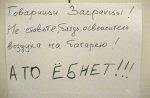 Товарищи Засранцы!
Не ставьте, блядь, освежитель
воздуха на батарею!
А ТО ЁБНЕТ!!!